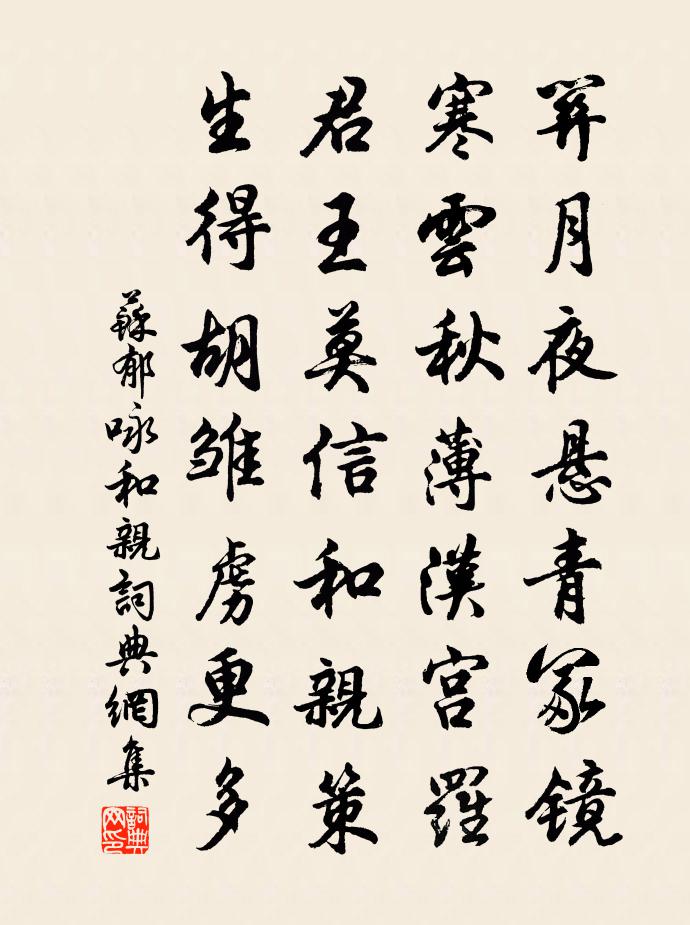 关月夜悬青冢镜
寒雲秋薄漢宫羅
君王莫信和親策
生得胡雏虏更多
蘇郁咏和親詞典網集
詞典
网印